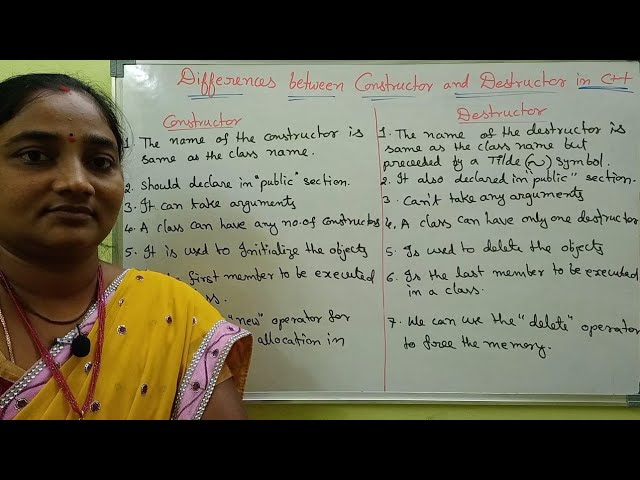 Differences between Constructor and Destructor in C++
Constructor
1. The name of the constructor is
same as the class name.
2. Should declare in "public" section.
3. It can take arguments
4. A class can have any no. of constructors
5. It is used to Initialize the objects
first member to be executed
"new" operator for
allocation in
Destructor
1. The name of the destructor is
same as the class name but
preceeded by a Tilde (~) symbol.
2. It also declared in "public" section.
3. Can't take any arguments
4. A class can have only one destructor
5. Is used to delete the objects
6. Is the last member to be executed
in a class.
7. We can use the "delete" operator
to free the memory.